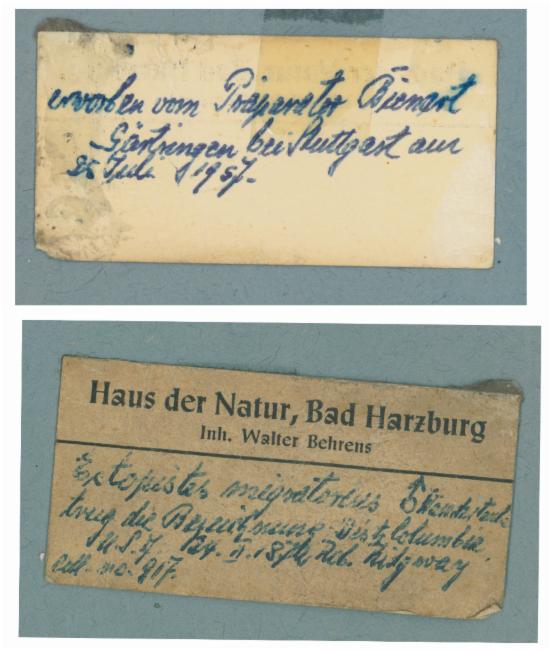 erworben vom Präparator Bienert
Gärtringen bei Stuttgart am
25 Juli 1957.
Haus der Natur, Bad Harzburg
Inh. Walter Behrens
Ectopistes migratorius ♂
trug die Bezeichnung Distr. Columbia
U.S. Rob. Ridgway
coll. no. 917.